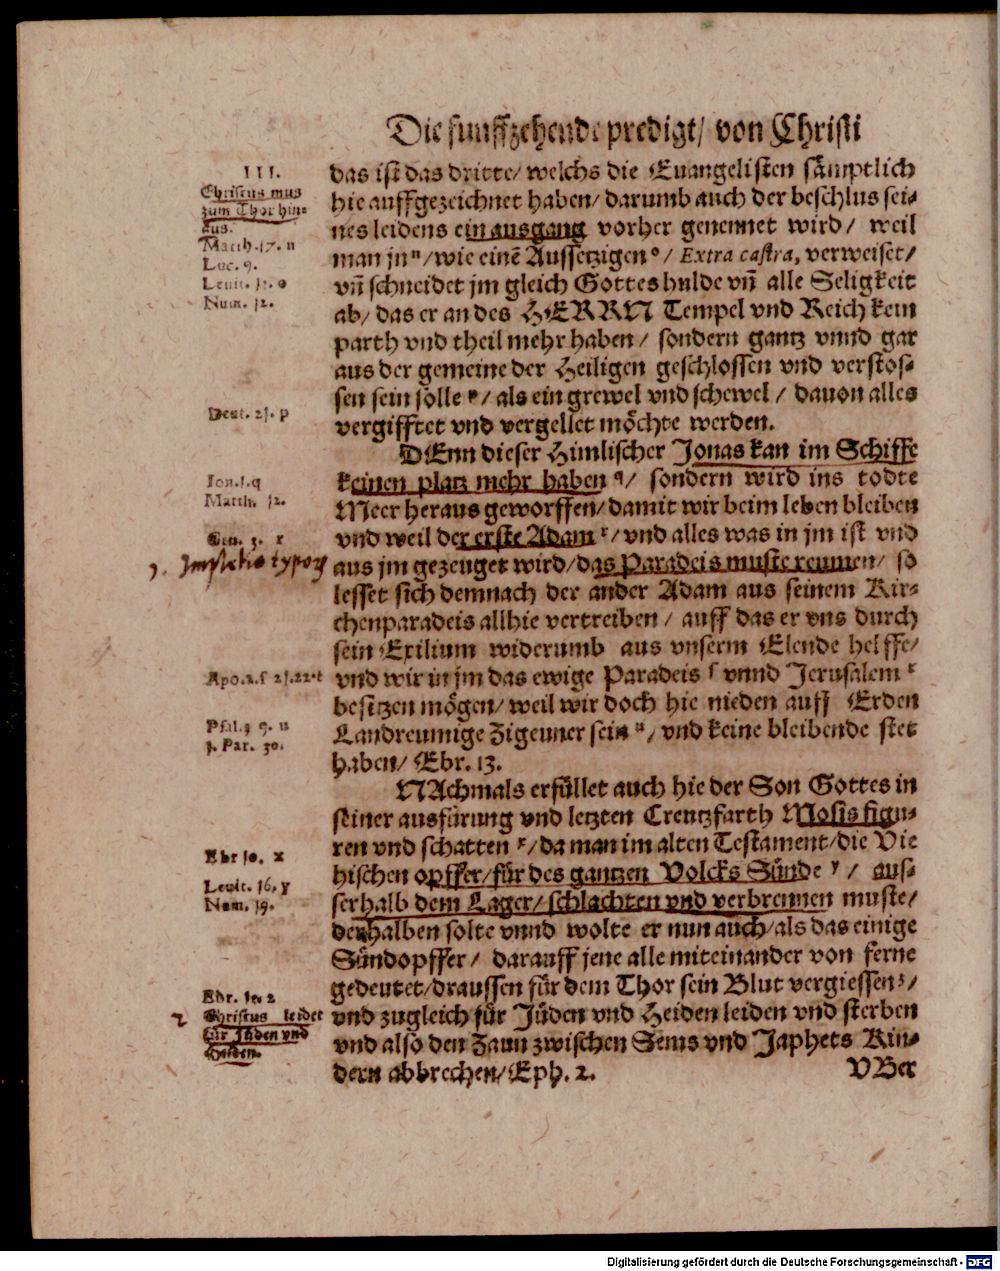 Die funffzehende predigt/ von Christi
III.
Christus mus
zum Thor hin-
aus.
Matth. 27. n
Luc. 9.
Leuit. 13. o
Num. 12.
Deut. 23. p
Ion. 1. q
Matth. 12.
Gen. 3. r
Apo. 2. s 21. 22. t
Psal. 39. u
1. Par. 30.
Ebr 10. x
Leuit. 16. y
Num. 19.
Ebr. z
Christus leidet
für Jüden vnd
Heiden.
das ist das dritte/ welchs die Euangelisten sämptlich
hie auffgezeichnet haben/ darumb auch der beschlus sei-
nes leidens ein ausgang vorher genennet wird/ weil
man jn ⁿ/ wie einē Aussetzigen º/ Extra castra, verweiset/
vñ schneidet jm gleich Gottes hulde vñ alle Seligkeit
ab/ das er an des HERRN Tempel vnd Reich kein
parth vnd theil mehr haben/ sondern gantz vnnd gar
aus der gemeine der Heiligen geschlossen vnd verstos-
sen sein solle ᵖ/ als ein grewel vnd schewel/ dauon alles
vergifftet vnd vergellet möchte werden.
DEnn dieser Himlischer Jonas kan im Schiffe
keinen platz mehr haben q/ sondern wird ins todte
Meer heraus geworffen/ damit wir beim leben bleiben
vnd weil der erste Adam ʳ/ vnd alles was in jm ist vnd
aus jm gezeuget wird/ das Paradeis muste reumen/ so
lesset sich demnach der ander Adam aus seinem Kir-
chenparadeis allhie vertreiben/ auff das er vns durch
sein Exilium widerumb aus vnserm Elende helffe/
vnd wir in jm das ewige Paradeis ˢ vnnd Jerusalem ᵗ
besitzen mögen/ weil wir doch hie nieden auff Erden
Landreumige Zigeuner sein ᵘ/ vnd keine bleibende stet
haben/ Ebr. 13.
NAchmals erfüllet auch hie der Son Gottes in
seiner ausfürung vnd letzten Creutzfarth Mosis figu-
ren vnd schatten ˣ/ da man im alten Testament/ die Vie
hischen opffer/ für des gantzen Volcks Sünde ʸ/ aus-
serhalb dem Lager/ schlachten vnd verbrennen muste/
derhalben solte vnnd wolte er nun auch/ als das einige
Sündopffer/ darauff jene alle miteinander von ferne
gedeutet/ draussen für dem Thor sein Blut vergiessen ᶻ/
vnd zugleich für Jüden vnd Heiden leiden vnd sterben
vnd also den Zaun zwischen Sems vnd Japhets Kin-
dern abbrechen/ Eph. 2.
VBer
Digitalisierung gefördert durch die Deutsche Forschungsgemeinschaft - DFG